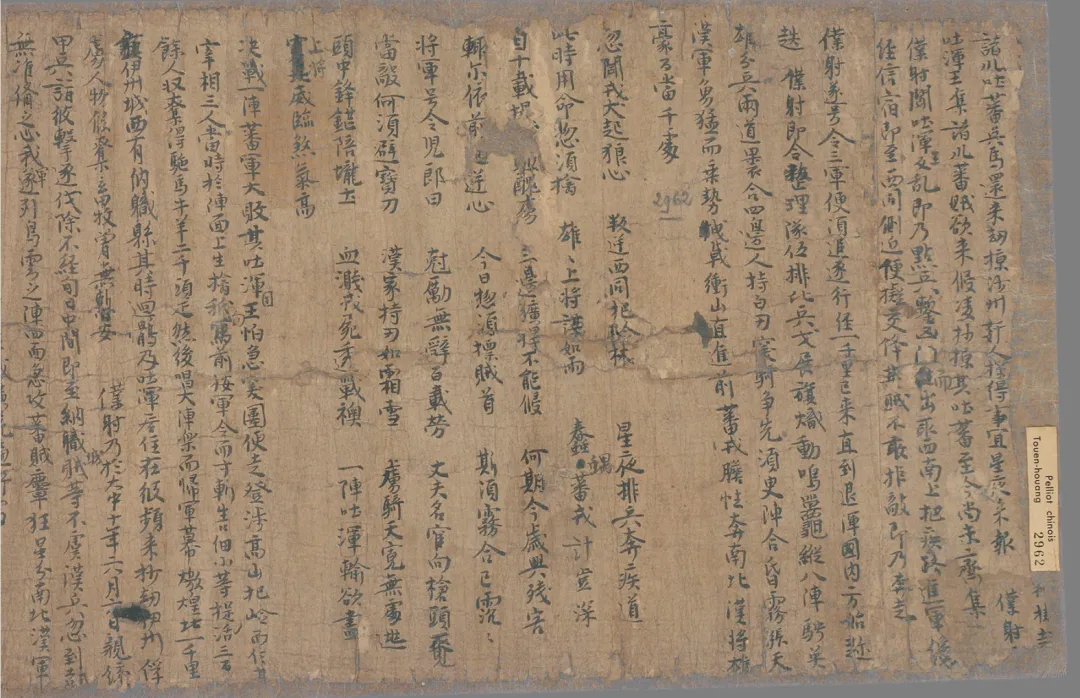 諸川吐蕃兵馬還來劫掠沙州奸人探得事宜星夜來報僕射
吐渾王集諸川蕃賊欲來侵凌抄掠其吐蕃至今尚未齊集
僕射聞吐渾王反亂即乃點兵鏨凶門而出取西南上把疾路進軍纔
經信宿即至西同側近便擬交鋒其賊不敢拒敵即乃奔走
僕射遂号令三軍便須追逐行經一千里已來直到退渾國內方始趁
趃僕射即令整理隊伍排比兵戈展旗幟動鳴鼉縱八陣騁英
雄分兵兩道裹合四邊人持白刃突騎爭先須臾陣合昏霧張天
漢軍勇猛而乘勢拽戟衝山直進前蕃戎膽怯奔南北漢將雄
豪乃當千處
2962
忽聞戎犬起狼心 叛逆西同把險林 星夜排兵奔疾道
此時用命總須擒 雄雄上將謀如雨 蠢愚蕃戎計豈深
自十載提 醜虜 三邊獷捍不能侵 何期今歲興殘害
輒尒依前起逆心 今日總須摽賊首 斯須霧合已沉沉
將軍号令兒郎曰 尅勵無辭百載勞 丈夫名宦向槍頭覓
當敵何須避寶刀 漢家持刃如霜雪 虜騎天寬無處逃
頭中鋒鋩陪壠土 血濺戎屍透戰襖 一陣吐渾輸欲盡
上將威臨煞氣高
決戰一陣蕃軍大敗其吐渾王怕急突圍便走登涉高山把嶮而住其
宰相三人當時於陣面上生擒秖向馬前按軍令而寸斬生口細小等捉活三百
餘人收奪得駞馬牛羊二千頭疋然後唱大陣樂而歸軍幕燉煌北一千里
鎮伊州城西有納職縣其時迴鶻及吐渾居住在彼頻來抄劫伊州俘
虜人物侵奪畜牧曾無暫安 僕射乃於大中十年六月六日親統
甲兵詣彼擊逐伐除不經旬日中間即至納職城賊等不虞漢兵忽到都
無准備之心我軍遂列烏雲之陣四面急攻蕃賊麞狂星分南北漢軍
Pelliot chinois
Touen-houang
2962